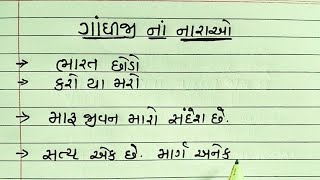 ગાંધીજી નાં નારાઓ
→ ભારત છોડો
→ કરો યા મરો
→ મારૂ જીવન મારો સંદેશ છે.
→ સત્ય એક છે. માર્ગ અનેક